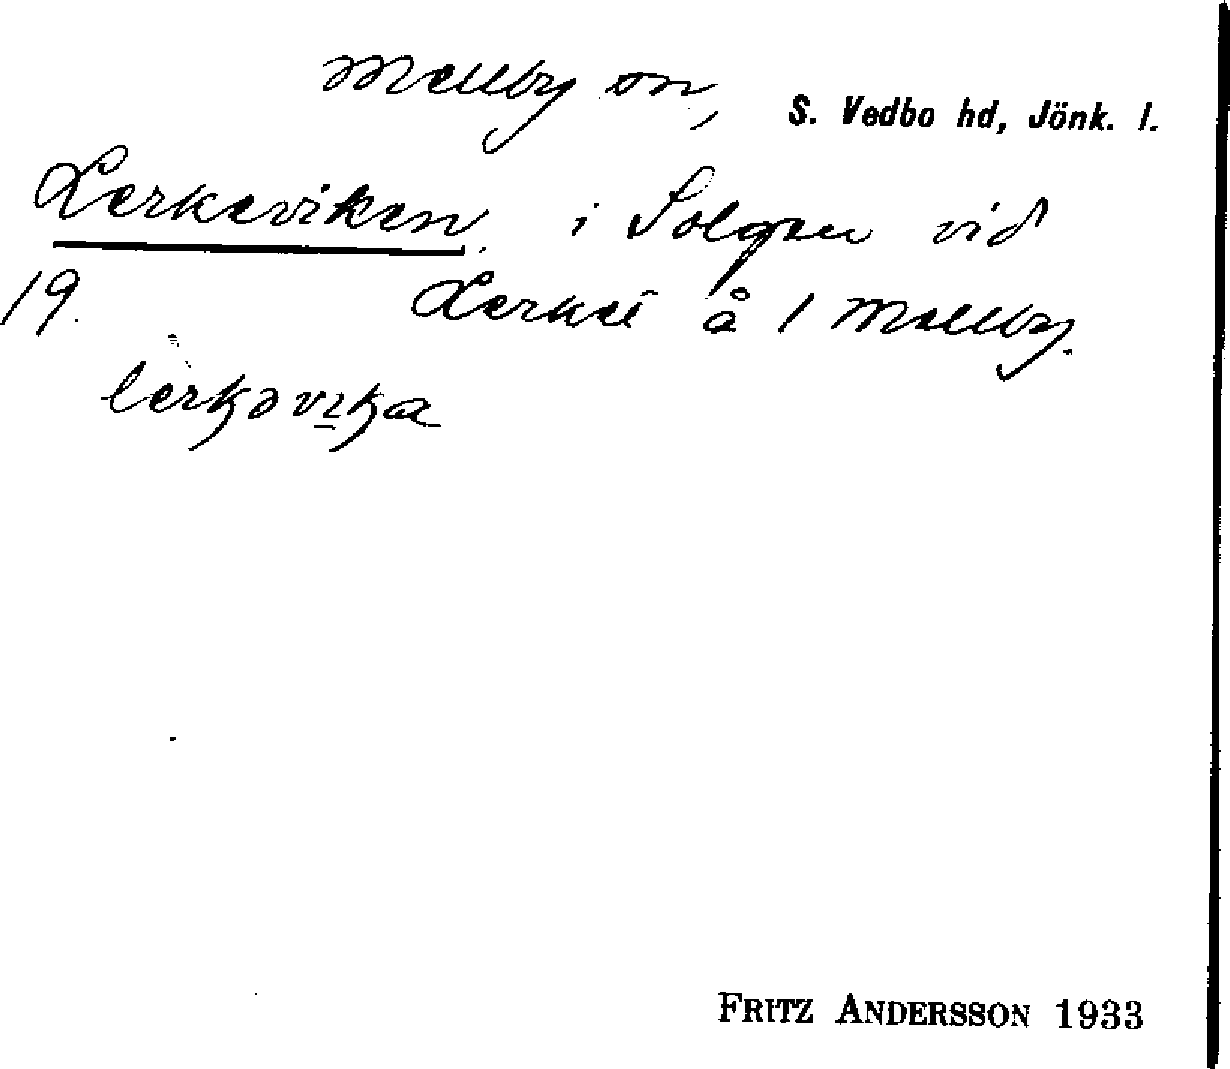 Mellby sn, S. Vedbo hd, Jönk. l.
Lerkeviken. i Solgen vid
19. Lerkei å / Mellby.
FRITZ ANDERSSON 1933